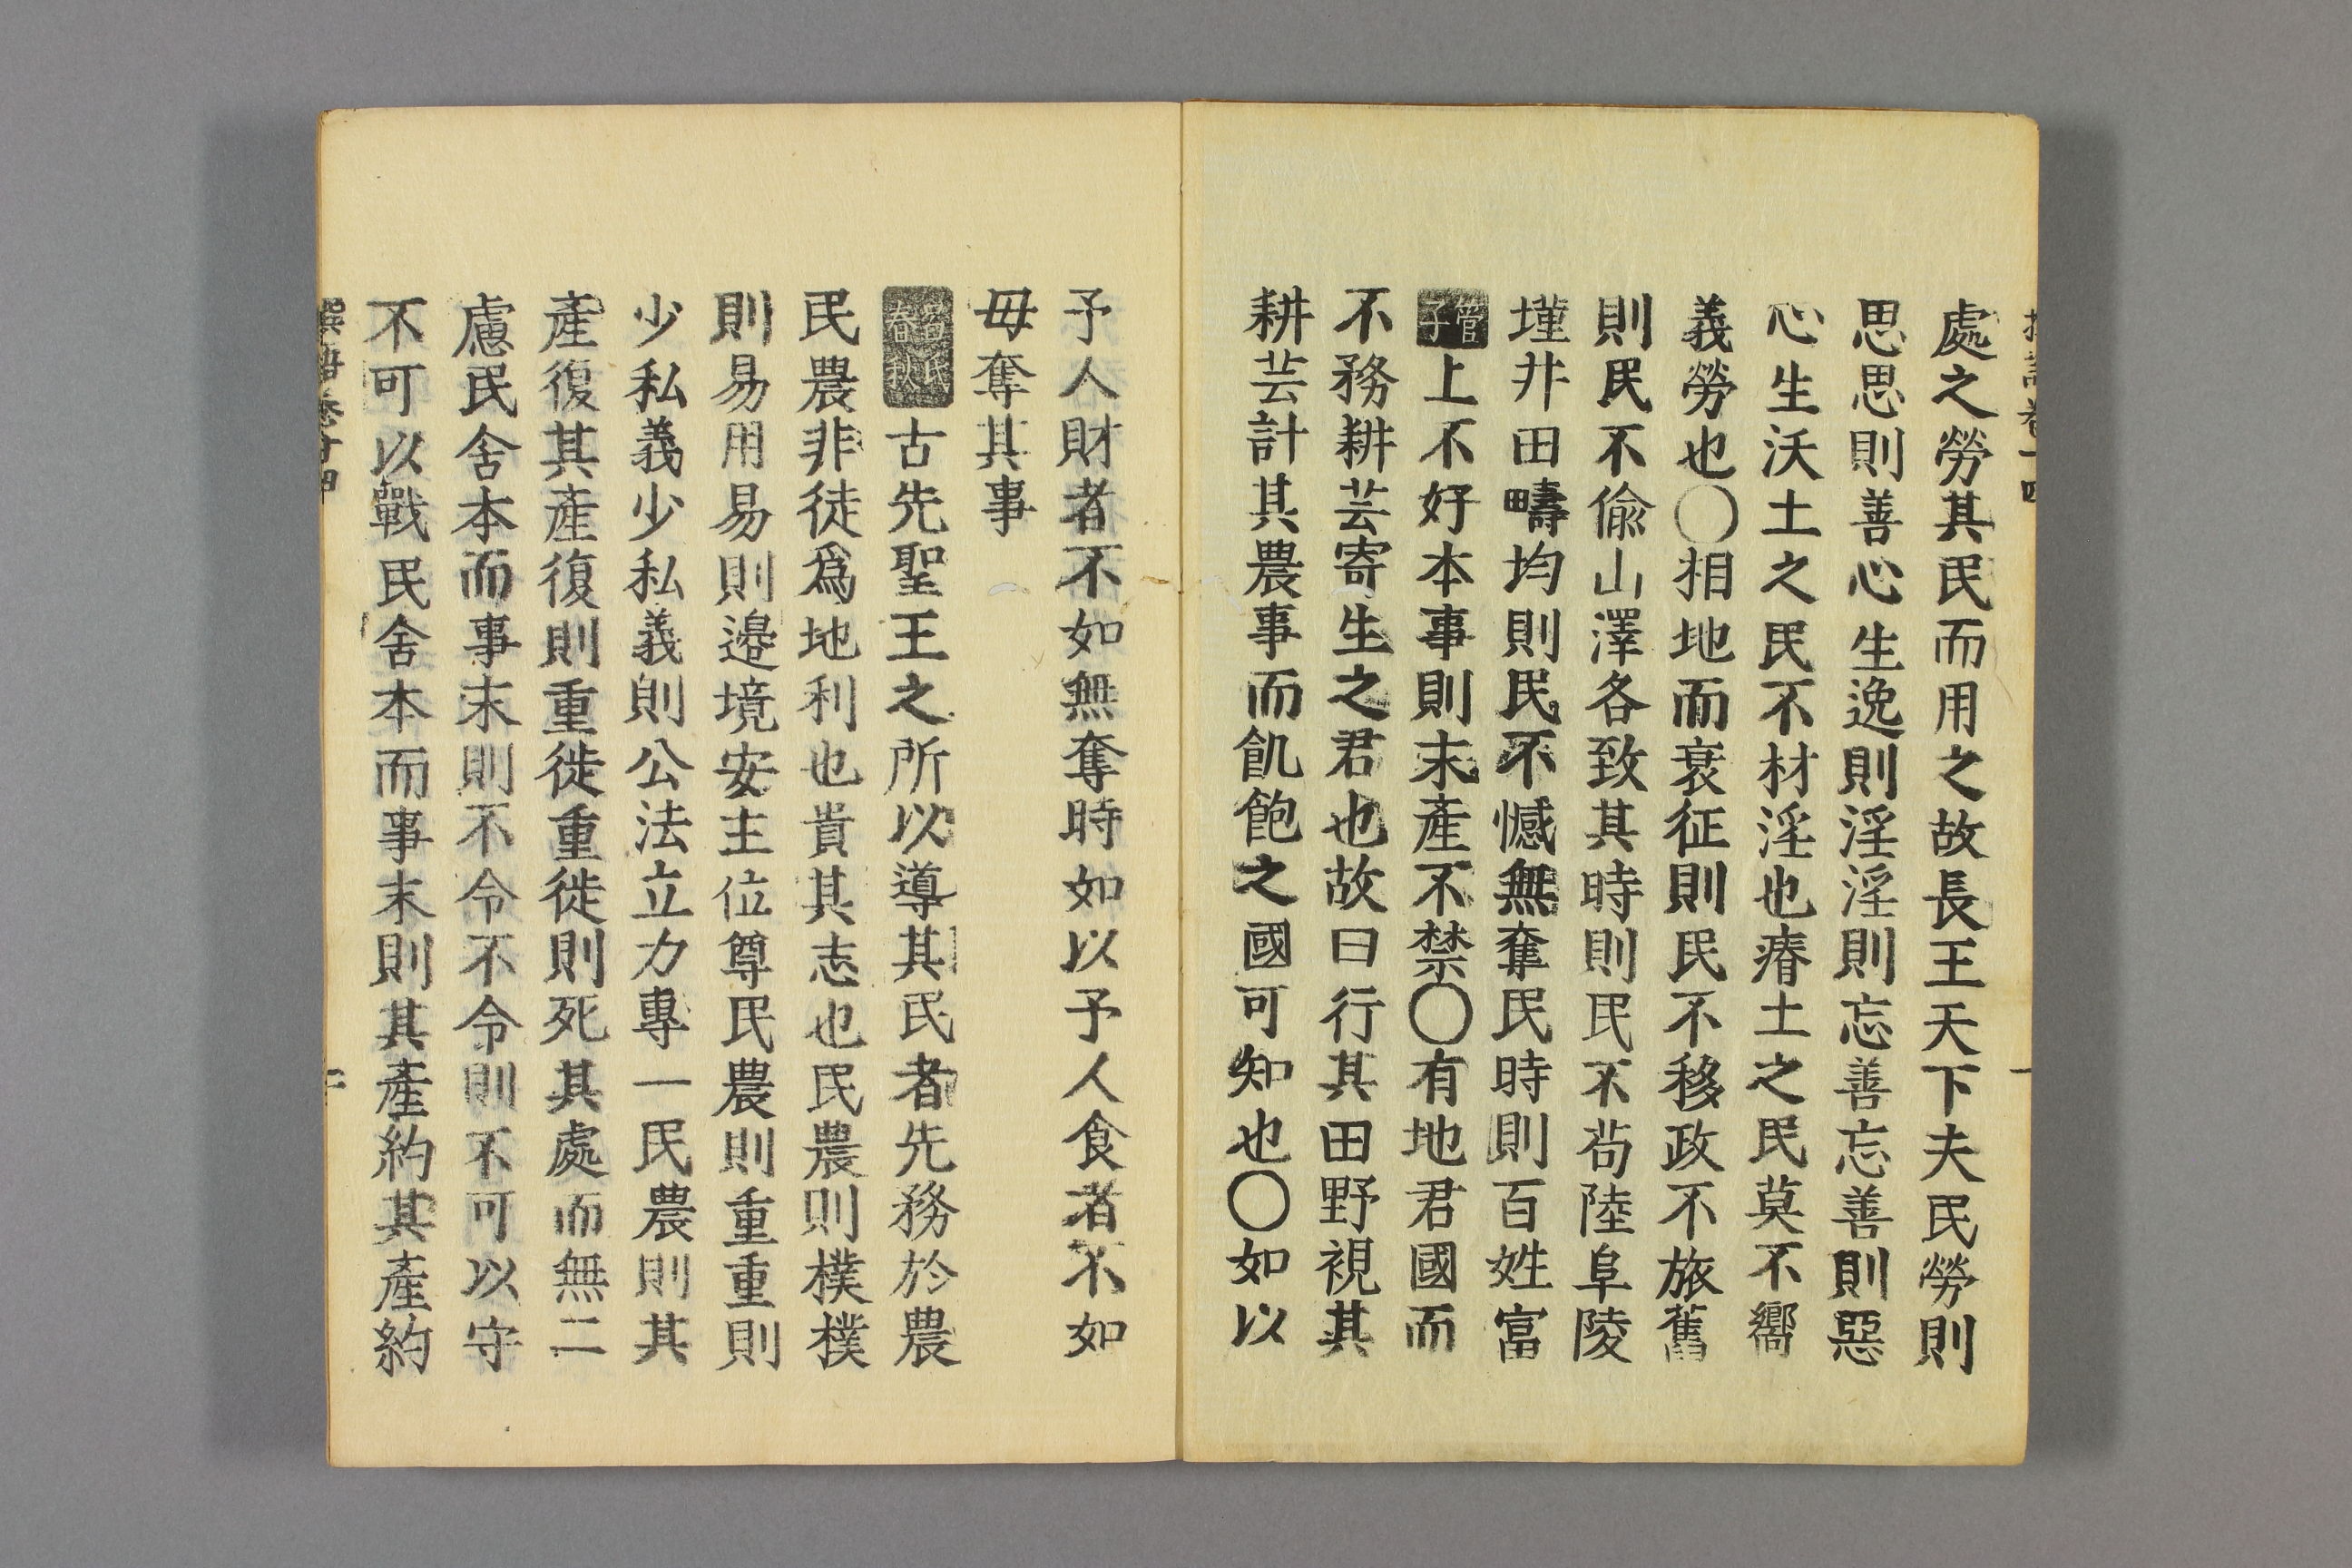 處之勞其民而用之故長王天下夫民勞則
思思則善心生逸則淫淫則忘善忘善則惡
心生沃土之民不材淫也瘠土之民莫不嚮
義勞也〇相地而衰征則民不移政不旅舊
則民不偸山澤各致其時則民不苟陸阜陵
墐井田疇均則民不憾無奪民時則百姓富
管子上不好本事則末產不禁〇有地君國而
不務耕芸寄生之君也故曰行其田野視其
耕芸計其農事而飢飽之國可知也〇如以
予人財者不如無奪時如以予人食者不如
毋奪其事
呂氏春秋古先聖王之所以導其民者先務於農
民農非徒爲地利也貴其志也民農則樸樸
則易用易則邉境安主位尊民農則重重則
少私義少私義則公法立力專一民農則其
產復其產復則重徙重徙則死其處而無二
慮民舍本而事末則不令不令則不可以守
不可以戰民舍本而事末則其產約其產約